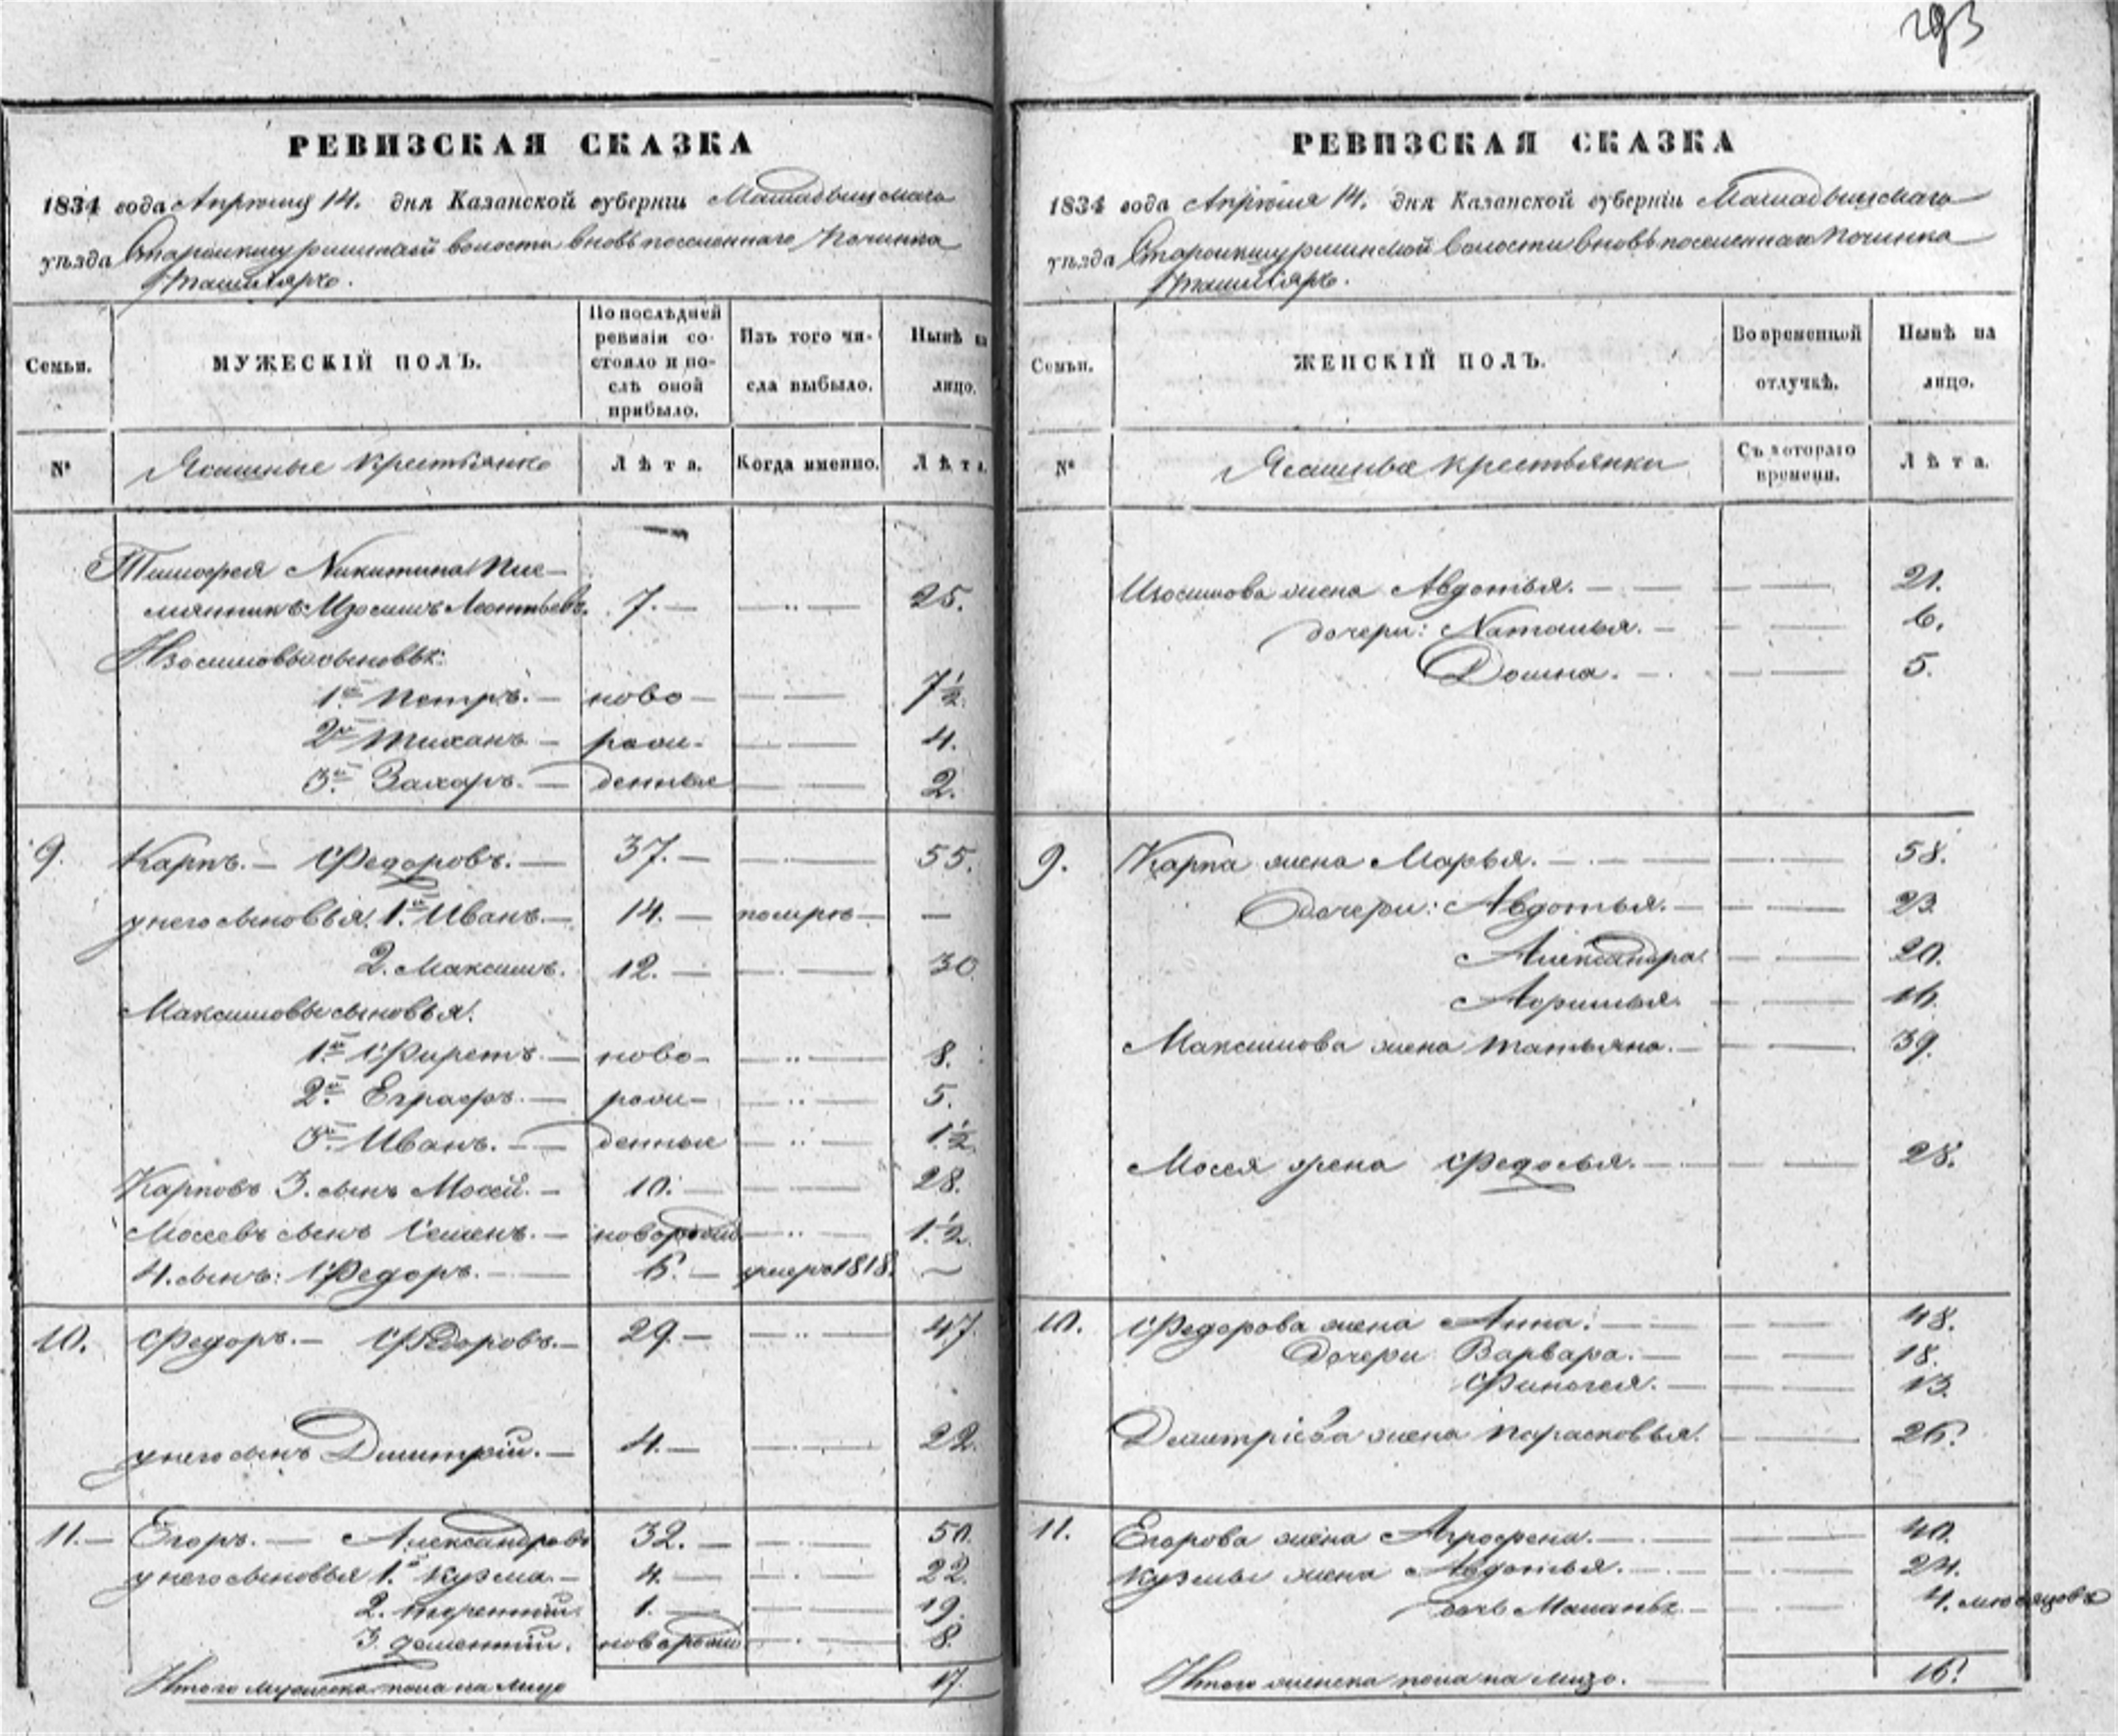 293
РЕВИЗСКАЯ СКАЗКА
1834 года Апреля 14. дня Казанской губерніи Мамадышскаго
уѣзда волости вновь поселеннаго Починка
Семьи.
МУЖЕСКІЙ ПОЛЪ.
По послѣдней ревизіи состояло и послѣ оной прибыло.
Изъ того числа выбыло.
Нынѣ на лицо.
№
Ясашные крестьяне
Лѣта.
Когда именно.
Лѣта.
Тимофея Никитина пле-
мянникъ Изосимъ Леонтьевъ. 7. 25.
Изосимовы сыновья:
1й Петръ. ново- 7½
2й рож- 4.
3й Захаръ. денные 2.
9. Карпъ. Федоровъ. 37. 55.
у него сыновья: 1й Иванъ. 14. помре —
2. Максимъ. 12. 30.
Максимовы сыновья:
1й ново- 8.
2й Еграфъ. рож- 5.
3й Иванъ. денные 1½
Карповъ 3. сынъ Мосей. 10. 28.
Мосеевъ сынъ Семенъ. новорожд. 1½
4. сынъ: Федоръ. 6. умеръ 1818.
10. Федоръ. Федоровъ. 29. 47.
у него сынъ Дмитрій. 4. 22.
11. Егоръ. Александровъ 32. 50.
у него сыновья 1й Кузма. 4. 22.
2. Терентій. 1. 19.
3. Дементій. новорожд. 8.
Итого мужеска пола на лицо 17.
РЕВИЗСКАЯ СКАЗКА
1834 года Апреля 14. дня Казанской губерніи Мамадышскаго
уѣзда волости вновь поселеннаго Починка
Семьи.
ЖЕНСКІЙ ПОЛЪ.
Во временной отлучкѣ.
Нынѣ на лицо.
№
Ясашные крестьянки
Съ котораго времени.
Лѣта.
Изосимова жена Авдотья. 21.
дочери: Наталья. 6.
Домна. 5.
9. Карпа жена Марья. 58.
Дочери: Авдотья. 23.
Александра. 20.
16.
Максимова жена Татьяна. 39.
Мосея жена Федосья. 28.
10. Федорова жена Анна. 48.
Дочери Варвара. 18.
13.
Дмитріева жена Парасковья. 26.
11. Егорова жена Аграфена. 40.
Кузмы жена Авдотья. 24.
дочь 4. месяцовъ
Итого женска пола на лицо. 16.